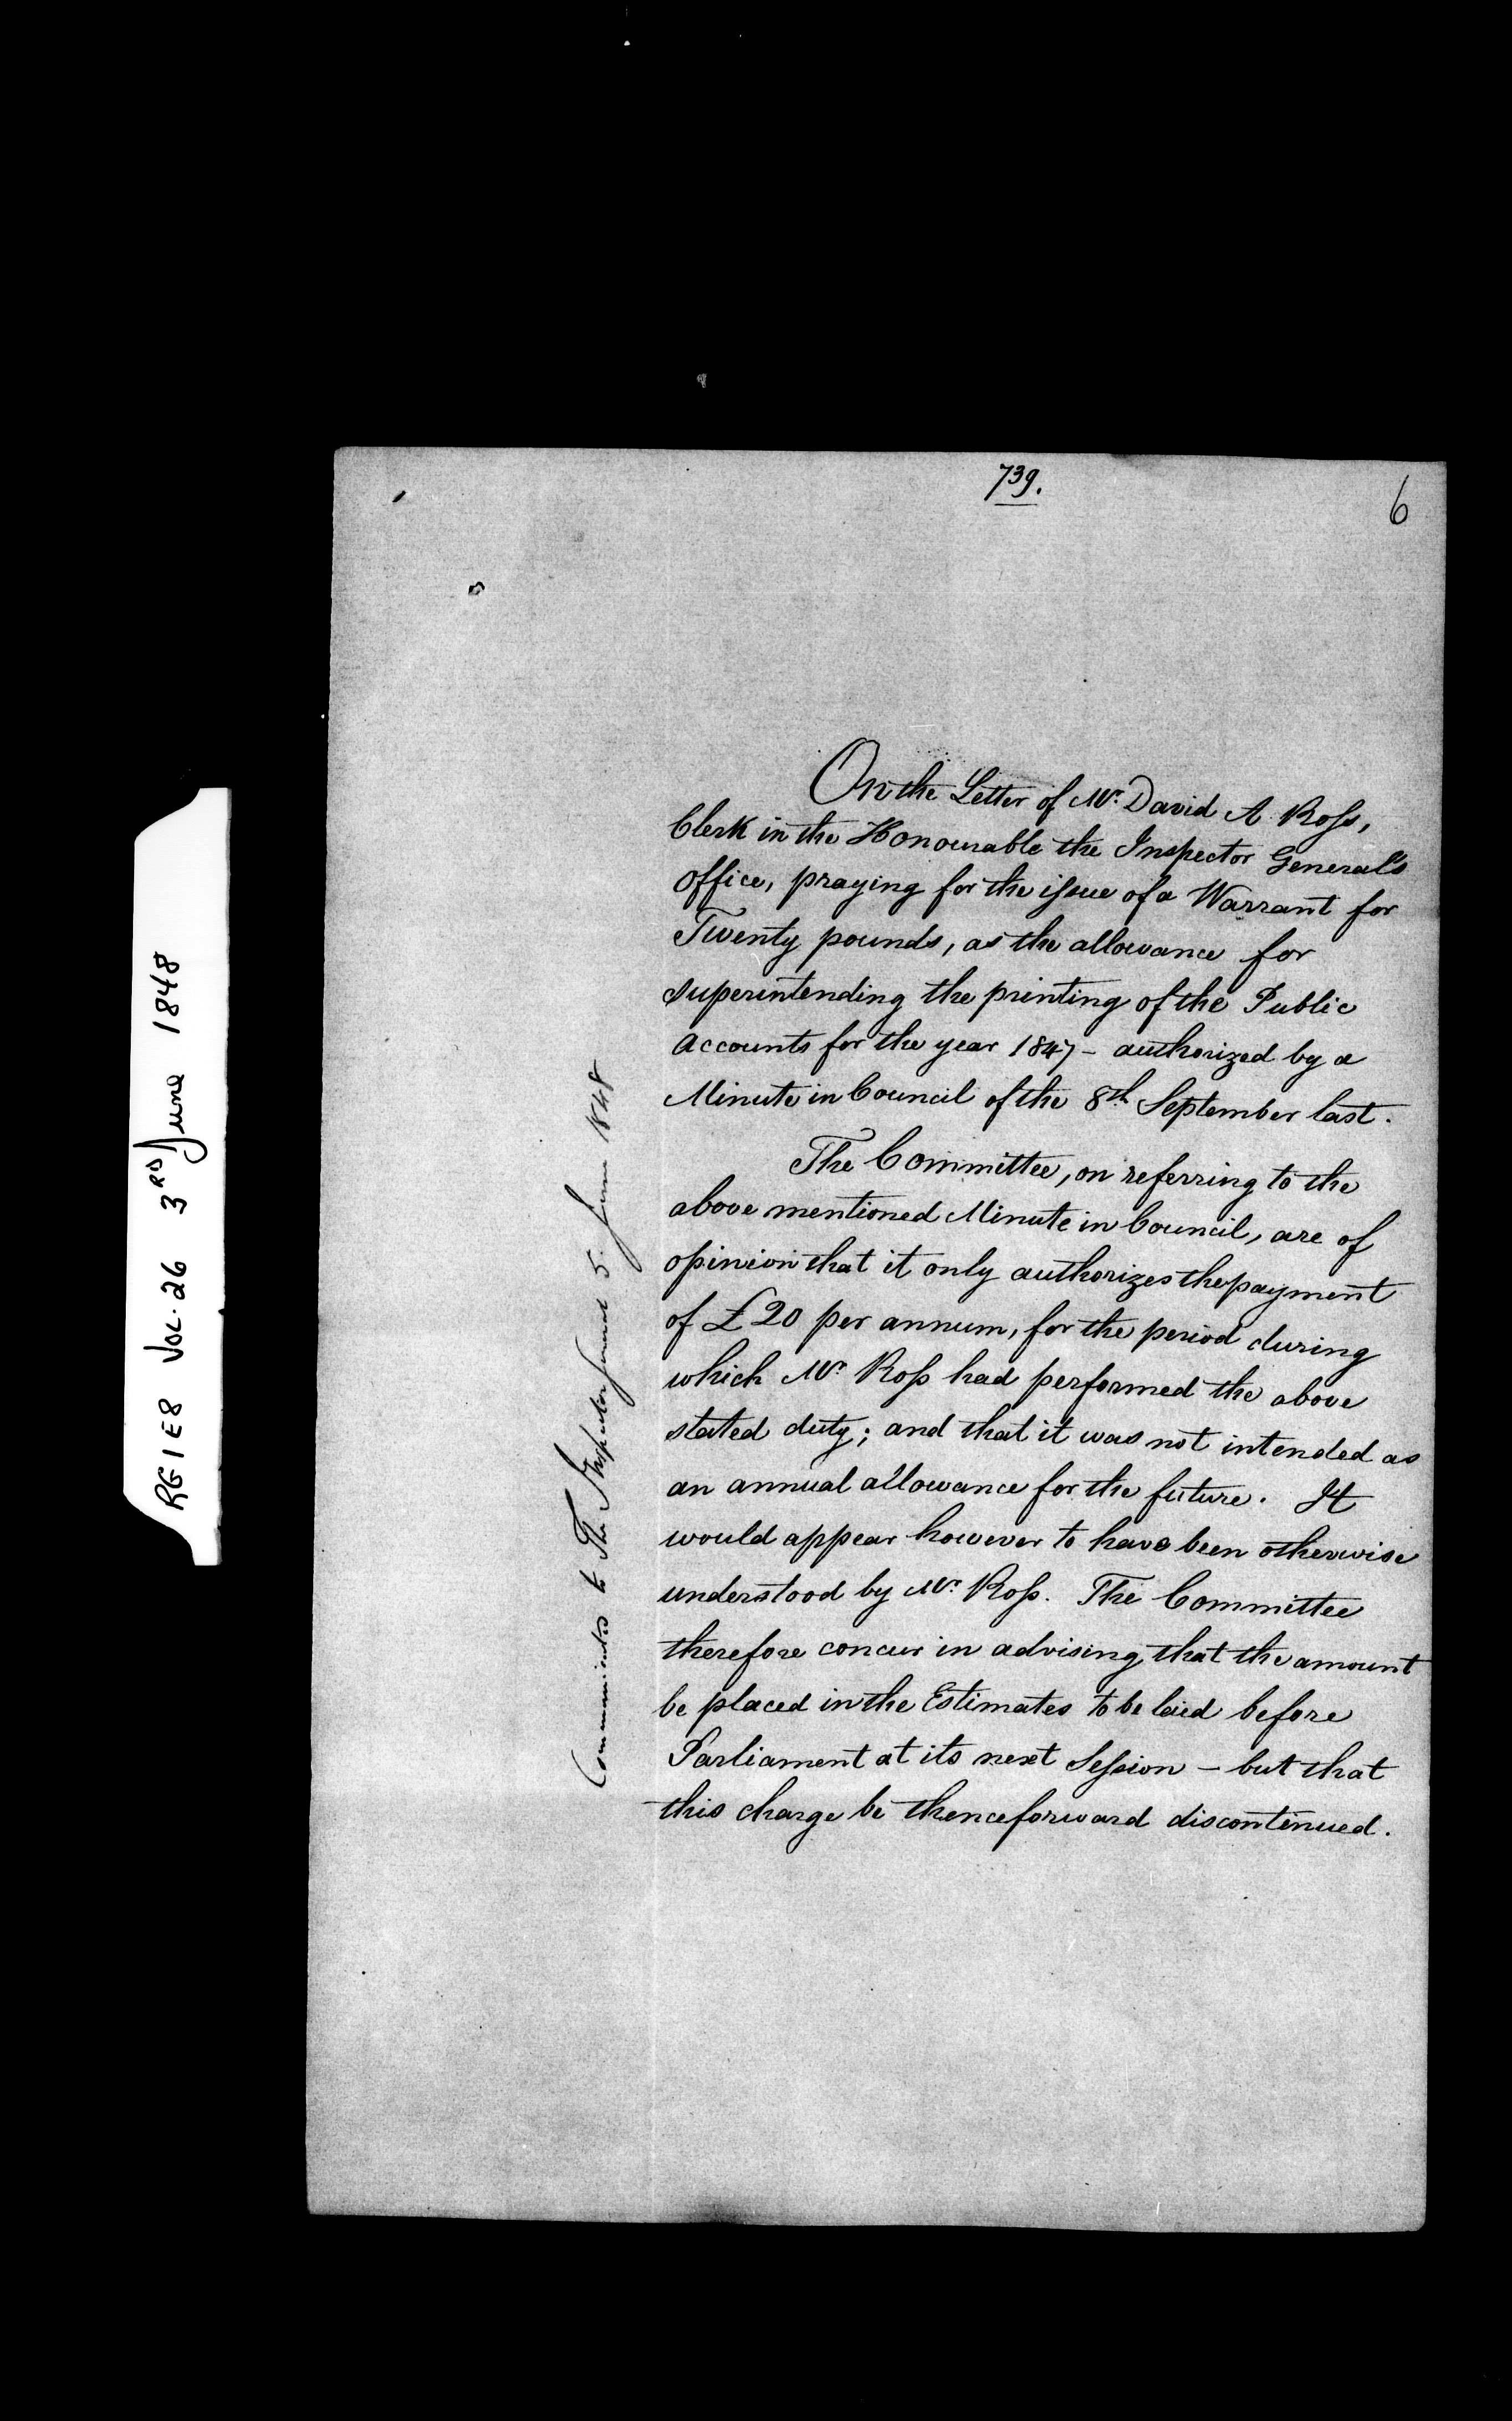 739.
6
On the Letter of Mr. David A. Ross,
Clerk in the Honourable the Inspector General's
Office, praying for the issue of a Warrant for
Twenty pounds, as the allowance for
superintending the printing of the Public
Accounts for the year 1847 - authorized by a
Minute in Council of the 8th September last.
The Committee, on referring to the
above mentioned Minute in Council, are of
opinion that it only authorizes the payment
of £20 per annum, for the period during
which Mr. Ross had performed the above
stated duty; and that it was not intended as
an annual allowance for the future. It
would appear however to have been otherwise
understood by Mr. Ross. The Committee
therefore concur in advising that the amount
be placed in the Estimates to be laid before
Parliament at its next Session - but that
this charge be thenceforward discontinued.
Communicated to The Inspector General 5. June 1848
RG1E8 VOL. 26 3RD June 1848